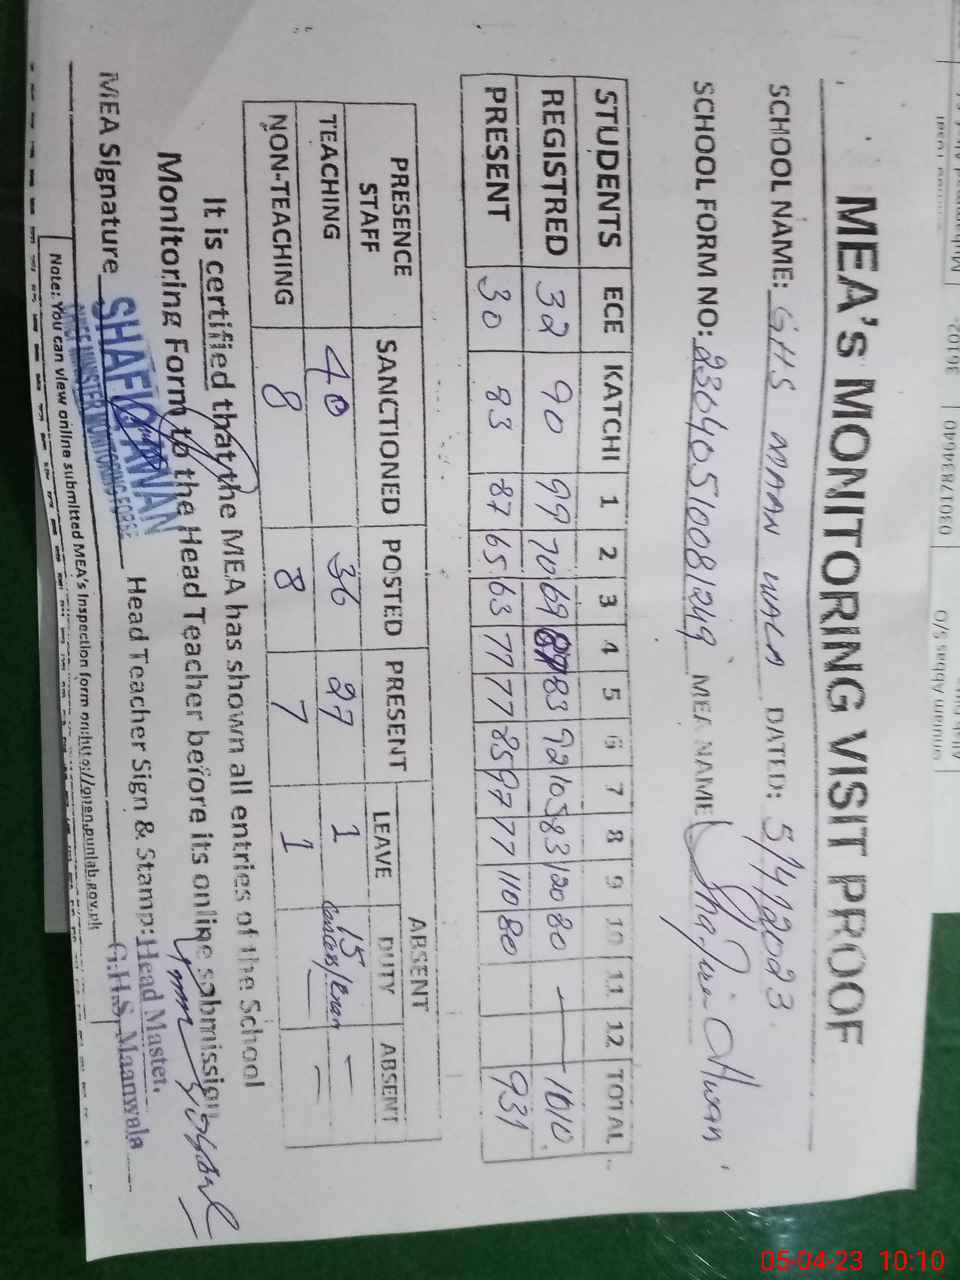 MEA's MONITORING VISIT PROOF
SCHOOL NAME: GHS MAAN WALA DATED: 5/4/2023.
SCHOOL FORM NO: 23640510081249 MEA NAME
STUDENTS ECE KATCHI 1 2 3 4 5 6 7 8 9 10 11 12 TOTAL
REGISTRED 32 90 99 70 69 87 83 92 105 83 120 80 — 1010.
PRESENT 30 83 87 65 63 77 77 85 97 77 110 80 931
PRESENCE STAFF SANCTIONED POSTED PRESENT ABSENT
LEAVE DUTY ABSENT
TEACHING 40 36 27 1 15 –
NON-TEACHING 8 8 7 1 — —
It is certified that the MEA has shown all entries of the School
Monitoring Form to the Head Teacher before its online submission.
MEA Signature Head Teacher Sign & Stamp: Head Master.
G.H.S. Maanwala
CHIEF MINISTER MONITORING FORCE
Note: You can view online submitted MEA's Inspection form on:
05-04-23 10:10